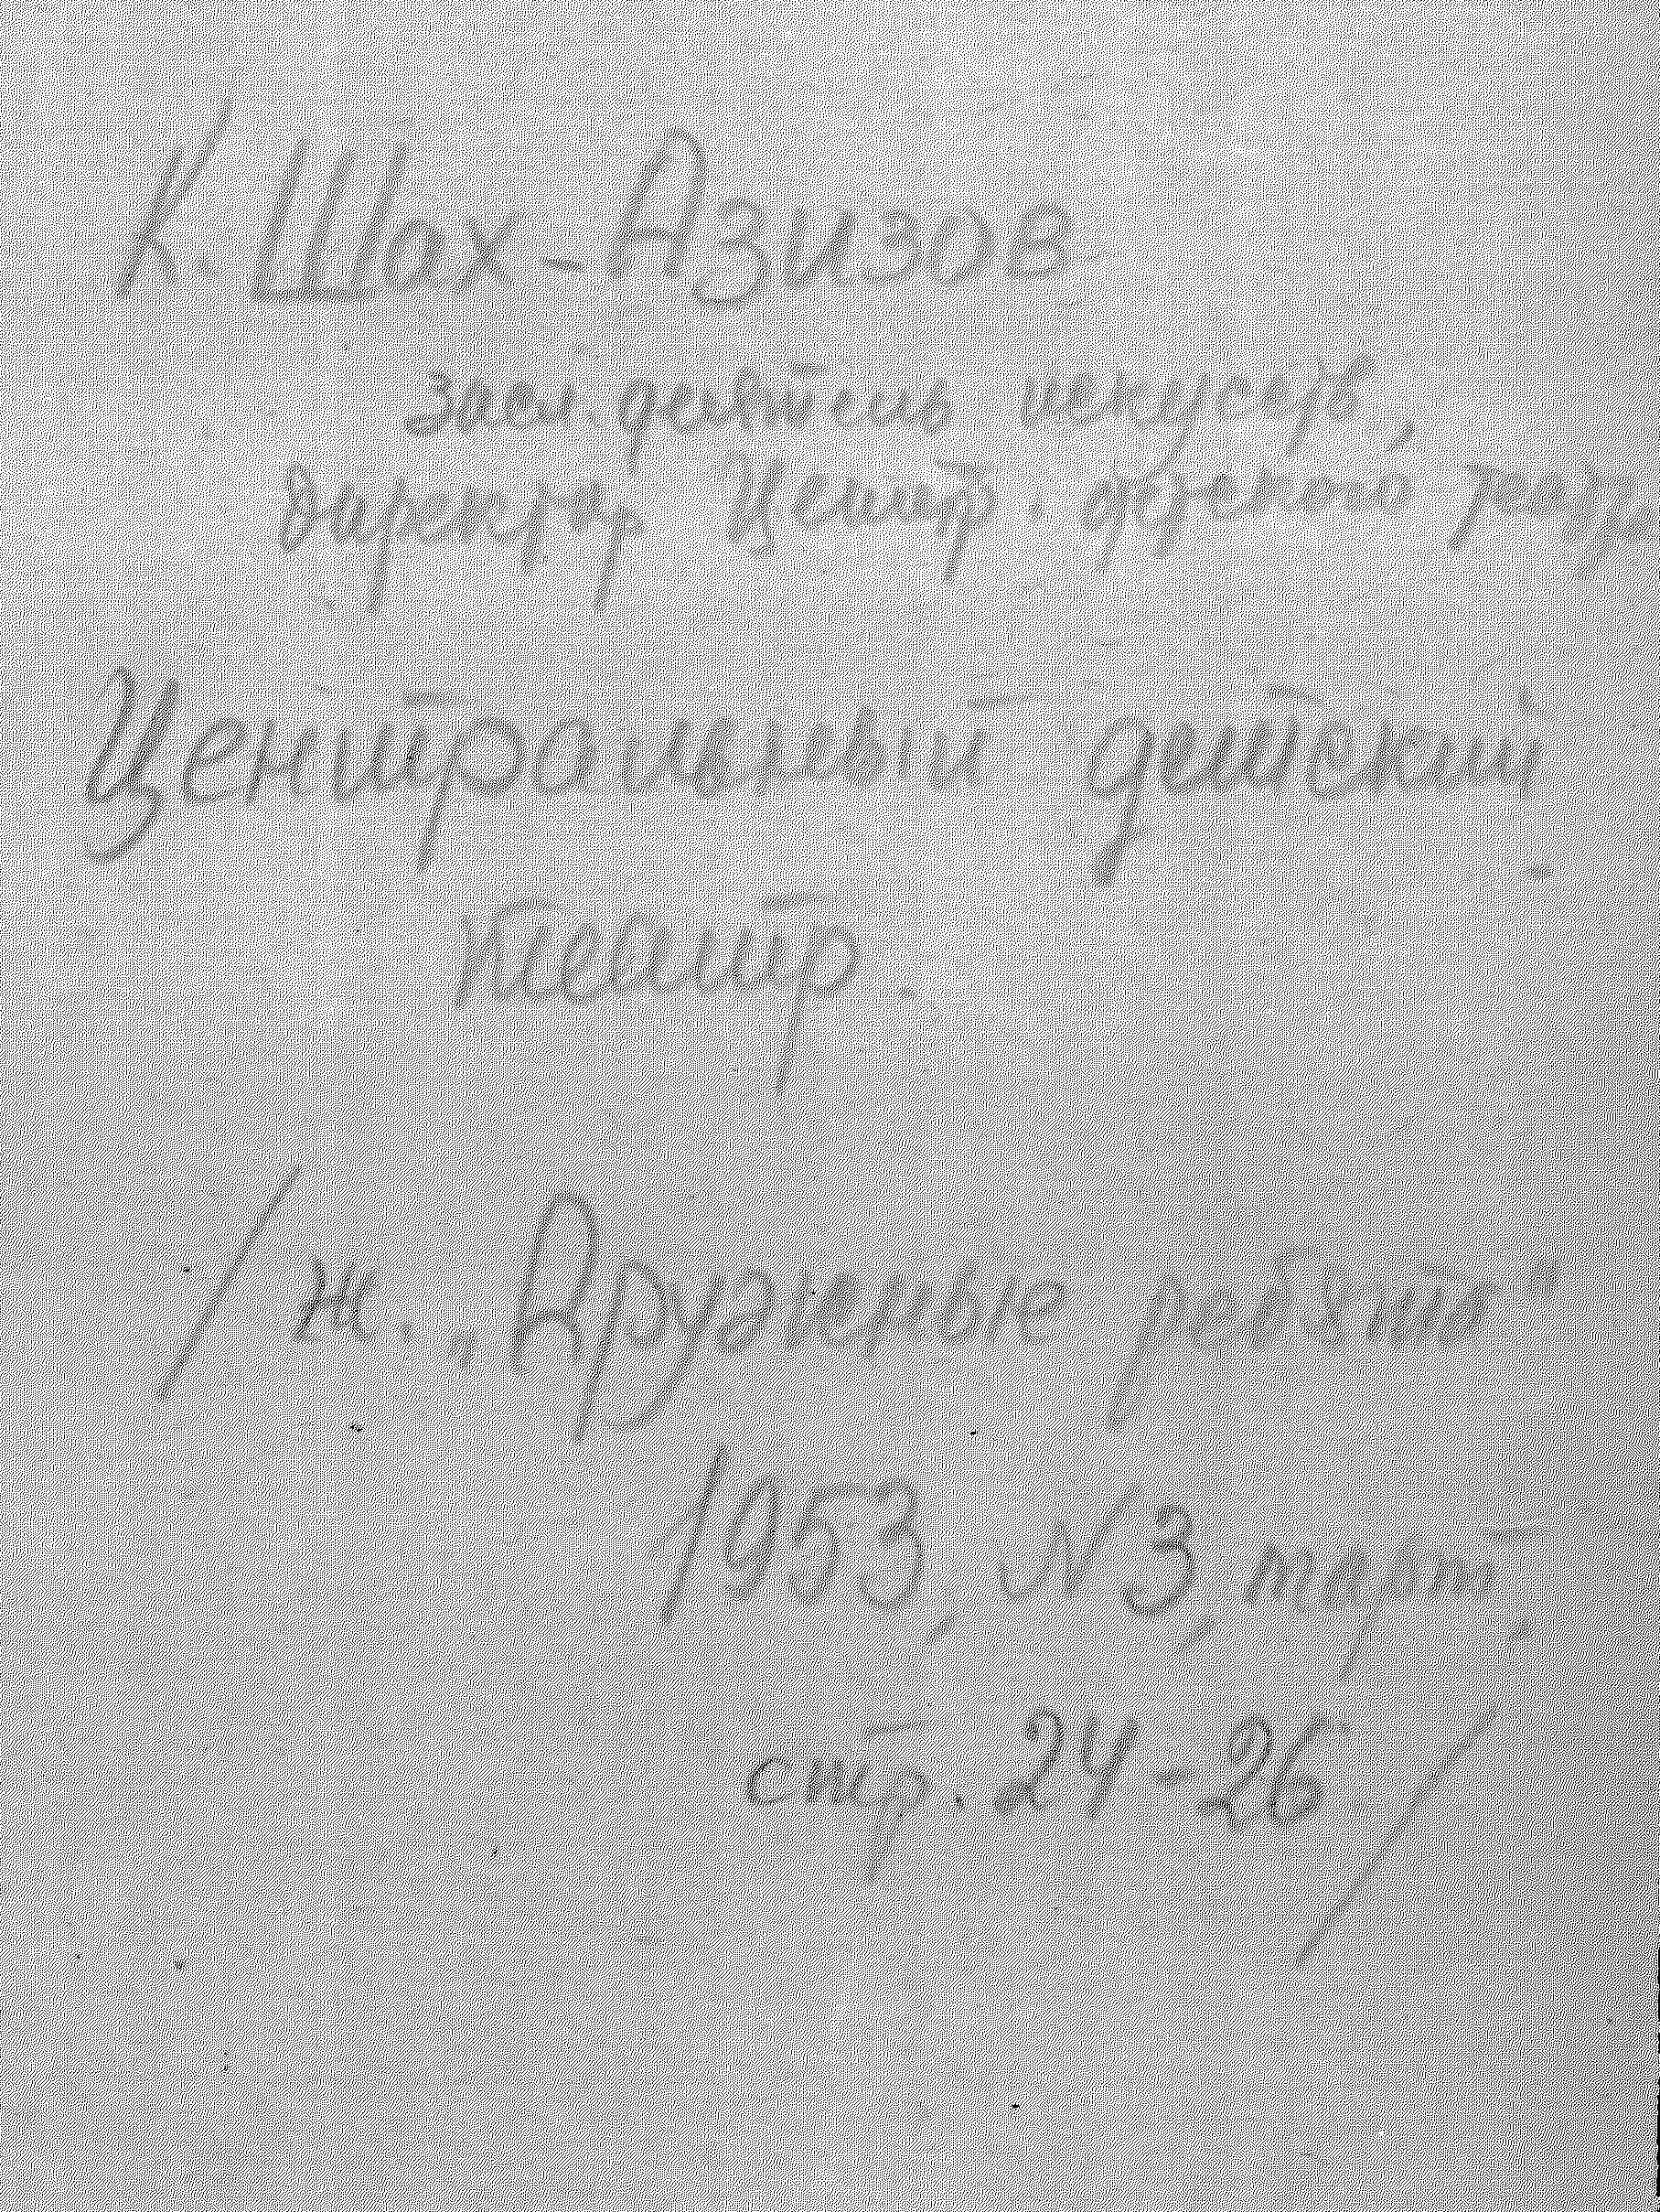 К. Шах-Азизов
засл. деятель искусств,
директор Центр. детского театра
Центральный детский
театр.
/ж. „Дружные ребята"
1953 №3 март
стр. 24-26/